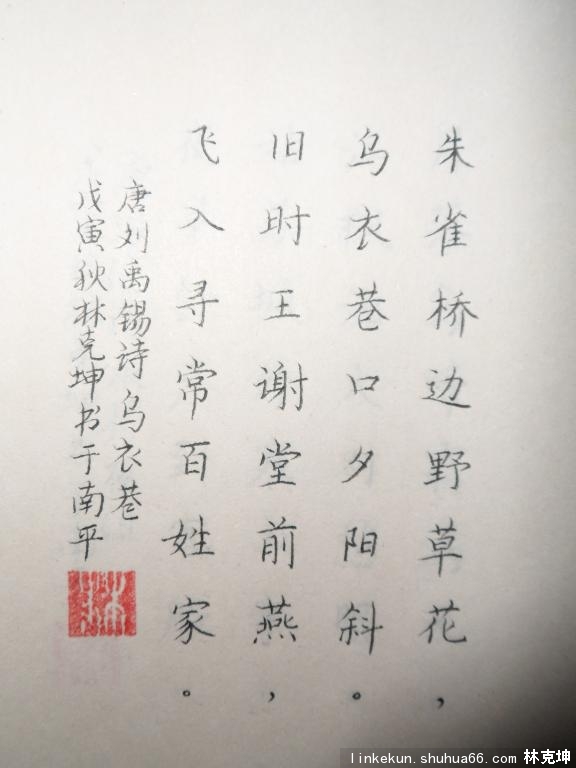 朱雀桥边野草花，
乌衣巷口夕阳斜。
旧时王谢堂前燕，
飞入寻常百姓家。
唐刘禹锡诗乌衣巷
戊寅秋林克坤书于南平
林
linkekun.shuhua66.com 林克坤